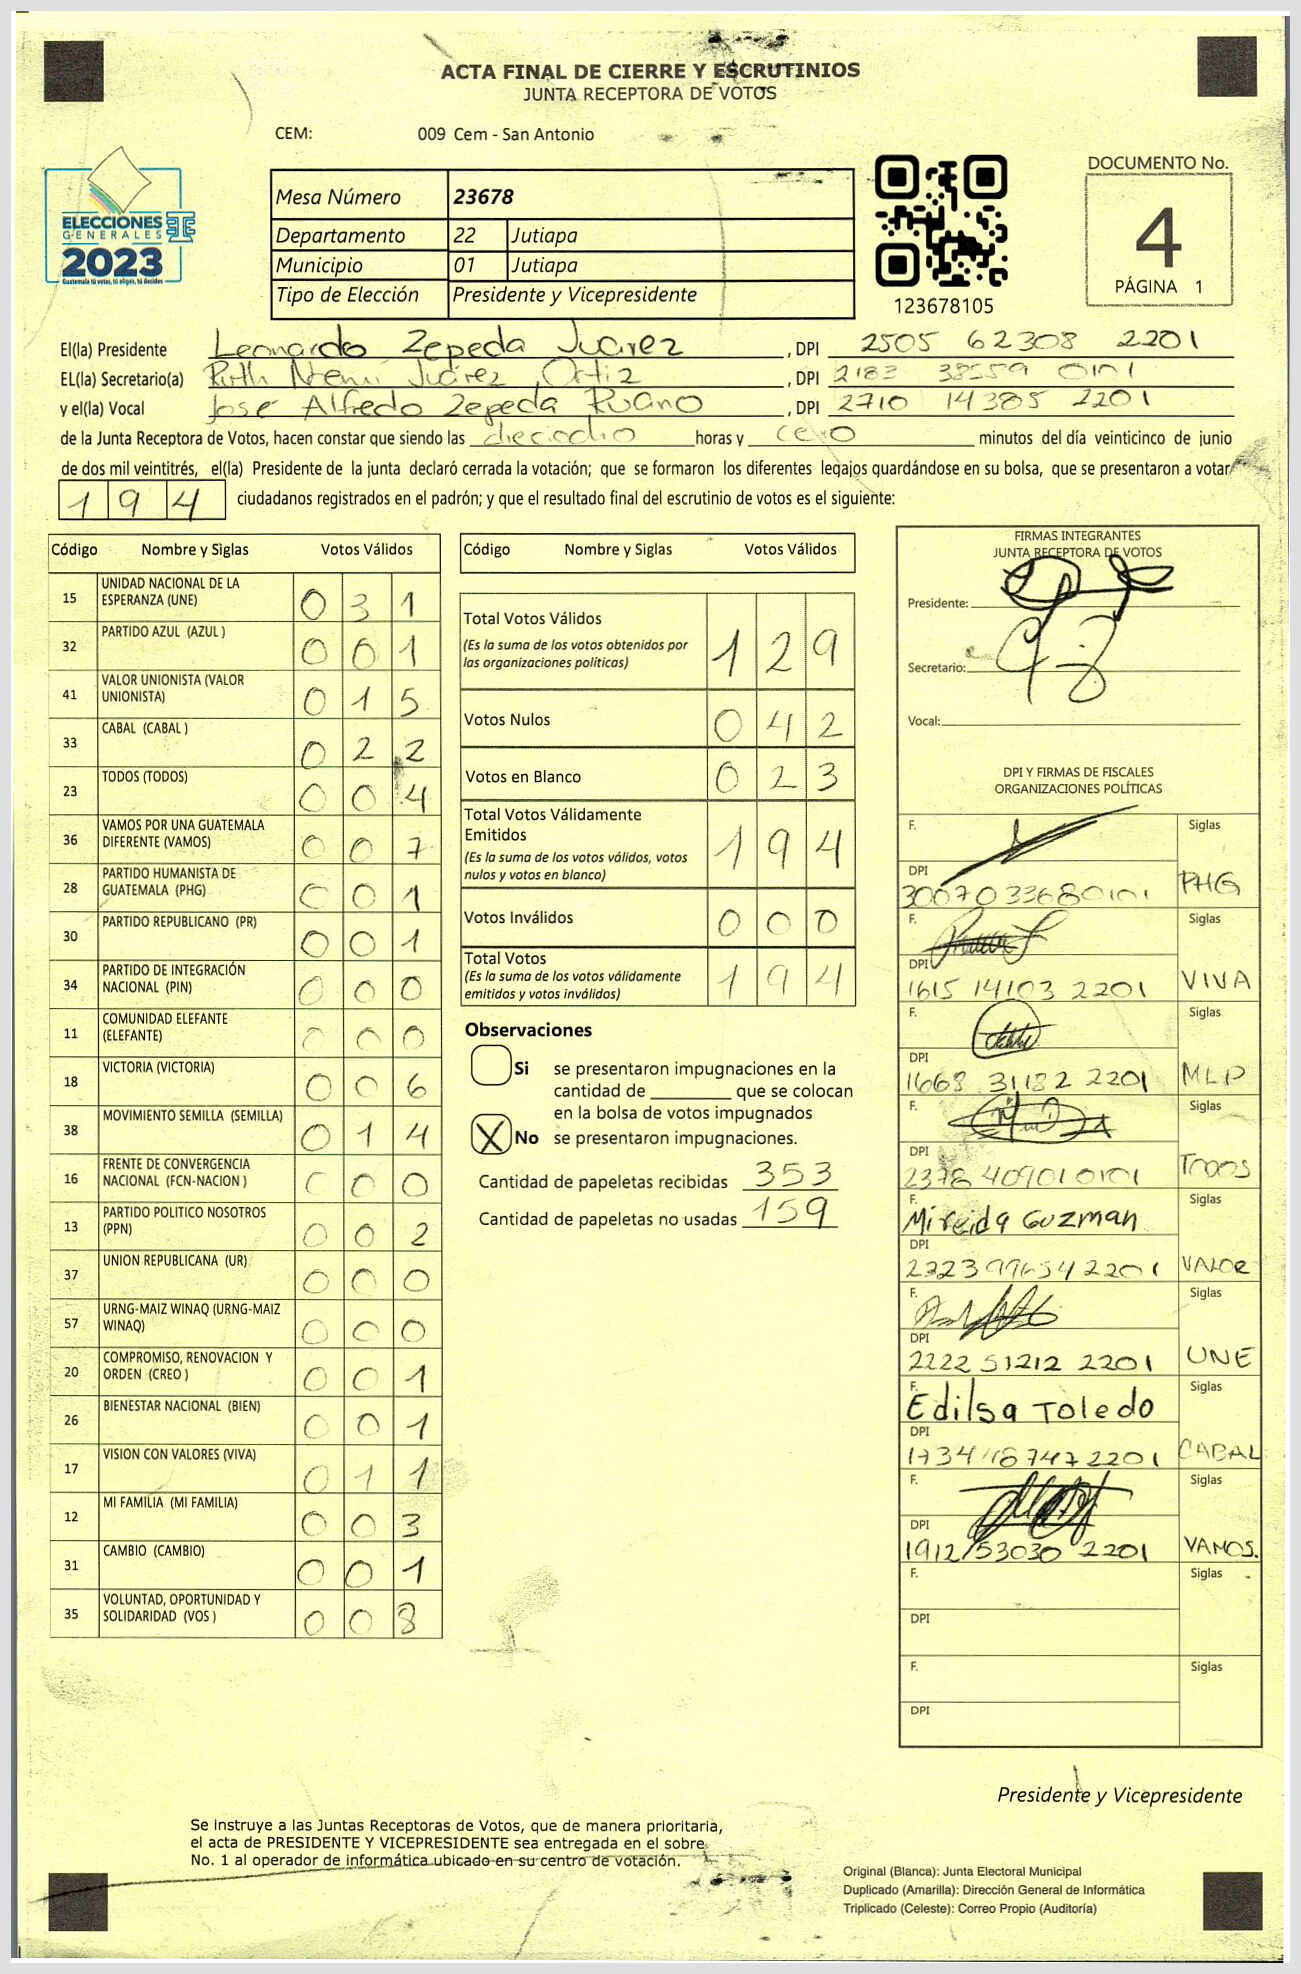 ACTA FINAL DE CIERRE Y ESCRUTINIOS
JUNTA RECEPTORA DE VOTOS
CEM: 009 Cem - San Antonio
ELECCIONES
GENERALES
2023
Guatemala tú votas, tú eliges, tú decides
Mesa Número 23678
Departamento 22 Jutiapa
Municipio 01 Jutiapa
Tipo de Elección Presidente y Vicepresidente
123678105
DOCUMENTO No.
4
PÁGINA 1
El(la) Presidente Leonardo Zepeda Juarez , DPI 2505 62308 2201
EL(la) Secretario(a) Ruth Noemí Juárez Ortiz , DPI 2183 38559 0101
y el(la) Vocal José Alfredo Zepeda Ruano , DPI 2710 14385 2201
de la Junta Receptora de Votos, hacen constar que siendo las dieciocho horas y cero minutos del día veinticinco de junio
de dos mil veintitrés, el(la) Presidente de la junta declaró cerrada la votación; que se formaron los diferentes legajos guardándose en su bolsa, que se presentaron a votar
194 ciudadanos registrados en el padrón; y que el resultado final del escrutinio de votos es el siguiente:
Código Nombre y Siglas Votos Válidos
15 UNIDAD NACIONAL DE LA ESPERANZA (UNE) 0 3 1
32 PARTIDO AZUL (AZUL ) 0 0 1
41 VALOR UNIONISTA (VALOR UNIONISTA) 0 1 5
33 CABAL (CABAL ) 0 2 2
23 TODOS (TODOS) 0 0 4
36 VAMOS POR UNA GUATEMALA DIFERENTE (VAMOS) 0 0 7
28 PARTIDO HUMANISTA DE GUATEMALA (PHG) 0 0 1
30 PARTIDO REPUBLICANO (PR) 0 0 1
34 PARTIDO DE INTEGRACIÓN NACIONAL (PIN) 0 0 0
11 COMUNIDAD ELEFANTE (ELEFANTE) 0 0 0
18 VICTORIA (VICTORIA) 0 0 6
38 MOVIMIENTO SEMILLA (SEMILLA) 0 1 4
16 FRENTE DE CONVERGENCIA NACIONAL (FCN-NACION ) 0 0 0
13 PARTIDO POLITICO NOSOTROS (PPN) 0 0 2
37 UNION REPUBLICANA (UR) 0 0 0
57 URNG-MAIZ WINAQ (URNG-MAIZ WINAQ) 0 0 0
20 COMPROMISO, RENOVACION Y ORDEN (CREO ) 0 0 1
26 BIENESTAR NACIONAL (BIEN) 0 0 1
17 VISION CON VALORES (VIVA) 0 1 1
12 MI FAMILIA (MI FAMILIA) 0 0 3
31 CAMBIO (CAMBIO) 0 0 1
35 VOLUNTAD, OPORTUNIDAD Y SOLIDARIDAD (VOS ) 0 0 8
Código Nombre y Siglas Votos Válidos
Total Votos Válidos 1 2 9
(Es la suma de los votos obtenidos por
las organizaciones políticas)
Votos Nulos 0 4 2
Votos en Blanco 0 2 3
Total Votos Válidamente
Emitidos 1 9 4
(Es la suma de los votos válidos, votos
nulos y votos en blanco)
Votos Inválidos 0 0 0
Total Votos 1 9 4
(Es la suma de los votos válidamente
emitidos y votos inválidos)
Observaciones
Si se presentaron impugnaciones en la
cantidad de ________ que se colocan
en la bolsa de votos impugnados
X No se presentaron impugnaciones.
Cantidad de papeletas recibidas 353
Cantidad de papeletas no usadas 159
FIRMAS INTEGRANTES
JUNTA RECEPTORA DE VOTOS
Presidente:
Secretario:
Vocal:
DPI Y FIRMAS DE FISCALES
ORGANIZACIONES POLÍTICAS
F. Siglas
DPI
30070 33680101 PHG
F. Siglas
DPI
1615 14103 2201 VIVA
F. Siglas
DPI
1668 31182 2201 MLP
F. Siglas
DPI
2378 40901 0101 TODOS
F. Siglas
Mireida Guzman
DPI
2201 VALOR
F. Siglas
DPI
2222 51212 2201 UNE
F. Siglas
Edilsa Toledo
DPI
2201 CABAL
F. Siglas
DPI
1912 53030 2201 VAMOS.
F. Siglas
DPI
F. Siglas
DPI
Presidente y Vicepresidente
Se instruye a las Juntas Receptoras de Votos, que de manera prioritaria,
el acta de PRESIDENTE Y VICEPRESIDENTE sea entregada en el sobre
No. 1 al operador de informática ubicado en su centro de votación.
Original (Blanca): Junta Electoral Municipal
Duplicado (Amarilla): Dirección General de Informática
Triplicado (Celeste): Correo Propio (Auditoría)